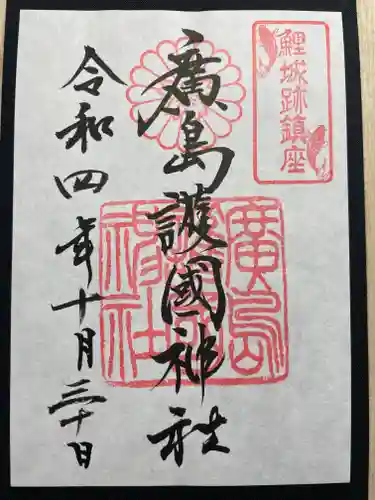 鯉城跡鎮座
廣島護國神社
令和四年十月三十日
廣島護國神社